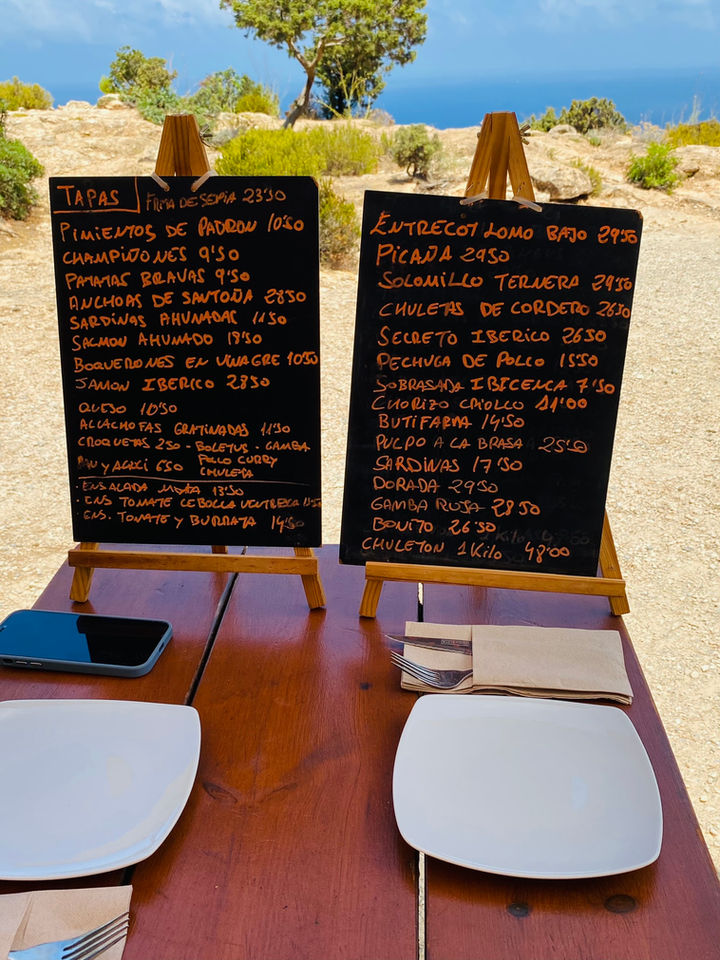 TAPAS FIRMA DE SEPIA 23'50
PIMIENTOS DE PADRON 10'50
CHAMPIÑONES 9'50
PATATAS BRAVAS 9'50
ANCHOAS DE SANTOÑA 28'50
SARDINAS AHUMADAS 11'50
SALMON AHUMADO 18'50
BOQUERONES EN VINAGRE 10'50
JAMON IBERICO 28'50
QUESO 10'50
ALCACHOFAS GRATINADAS 11'50
CROQUETAS 2'50 - BOLETUS - GAMBA
POLLO CURRY
PAN Y ALIOLI 6'50 CHULETA
ENSALADA MIXTA 13'50
· ENS TOMATE CEBOLLA VENTRESCA
· ENS. TOMATE Y BURRATA 14'50
ENTRECOT LOMO BAJO 29'50
PICAÑA 29'50
SOLOMILLO TERNERA 29'50
CHULETAS DE CORDERO 26'50
SECRETO IBERICO 26'50
PECHUGA DE POLLO 15'50
SOBRASADA IBICENCA 7'50
CHORIZO CRIOLLO 11'00
BUTIFARRA 14'50
PULPO A LA BRASA 25'50
SARDINAS 17'50
DORADA 29'50
GAMBA ROJA 28'50
BONITO 26'50
CHULETON 1 Kilo 48'00